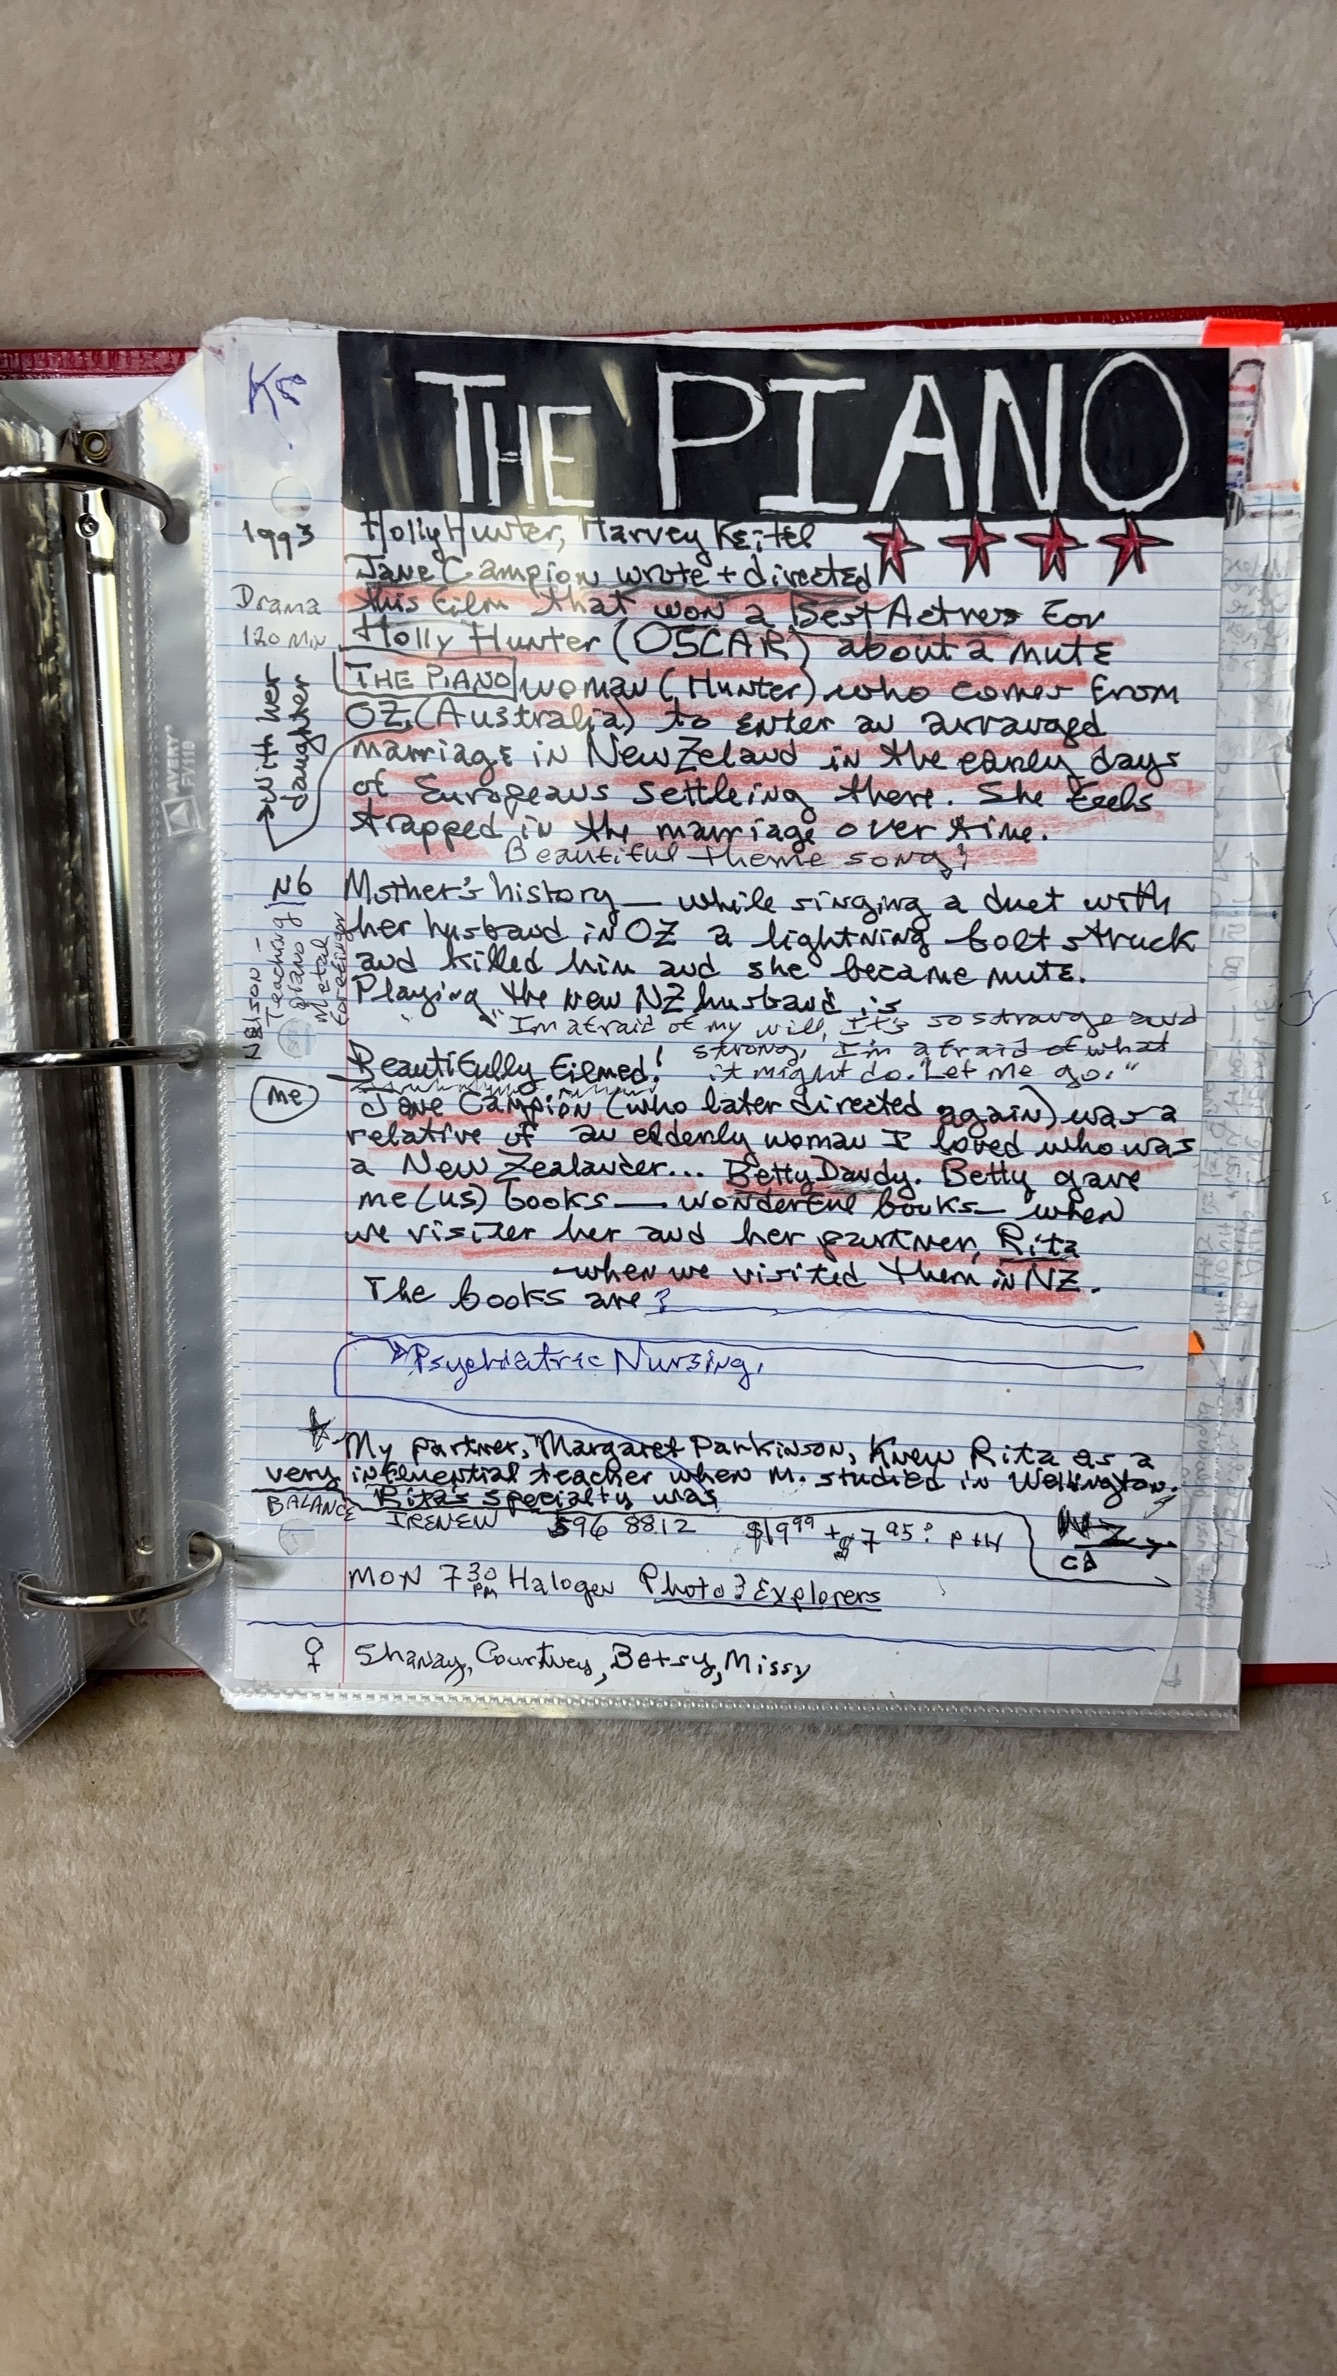 K5
THE PIANO
1993
Holly Hunter, Harvey Keitel
Jane Campion wrote + directed
Drama
this film that won a Best Actress for
120 MIN
Holly Hunter (OSCAR) about a mute
THE PIANO woman (Hunter) who comes from
OZ (Australia) to enter an arranged
marriage in New Zeland in the early days
of Europeans settleing there. She feels
trapped in the marriage over time.
→ with her
daughter
Beautiful theme song!
N6
Mother's history — while singing a duet with
her husband in OZ a lightning bolt struck
and killed him and she became mute.
Playing the new NZ husband is
Teaching
piano
"I'm afraid of my will, It's so strange and
strong, I'm afraid of what
it might do. Let me go."
Beautifully filmed!
me
Jane Campion (who later directed again) was a
relative of an elderly woman I loved who was
a New Zealander... Betty Dawdy. Betty gave
me (us) books — wonderful books — when
we visiter her and her partner, Rita
—when we visited them in NZ.
The books are?
Psychiatric Nursing.
My partner, Margaret Parkinson, knew Rita as a
very influential teacher when M. studied in Wellington.
Rita's specialty was
BALANCE
IRENEW 596 8812 $19.99 + $7.95: P+H
NZ
cd
MON 7 30 PM Halogen Photo Explorers
♀ Shanay, Courtney, Betsy, Missy
AVERY